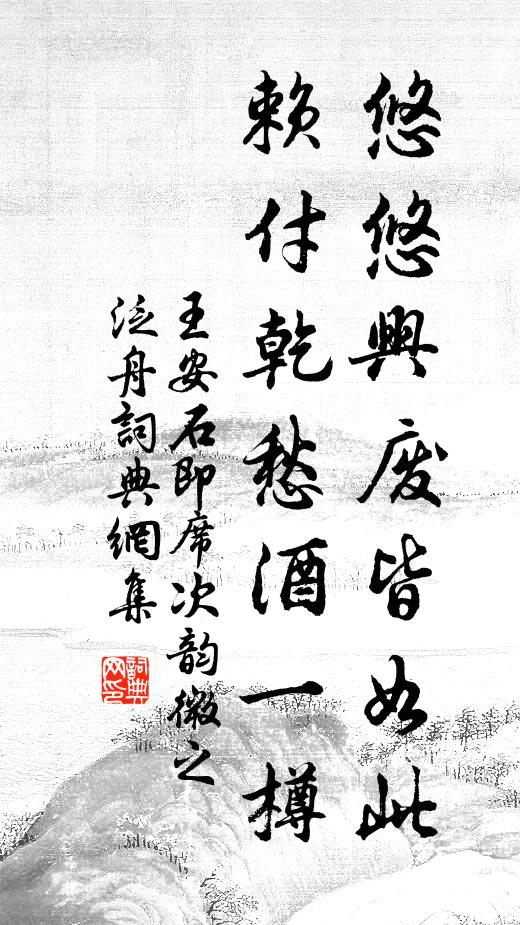 悠悠興废皆如此
賴付乾愁酒一樽
王安石即席次韵微之
泛舟詞典網集
詞典网印